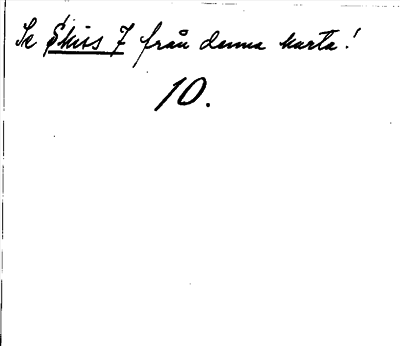 Se Skiss 7 från denna karta!
10.